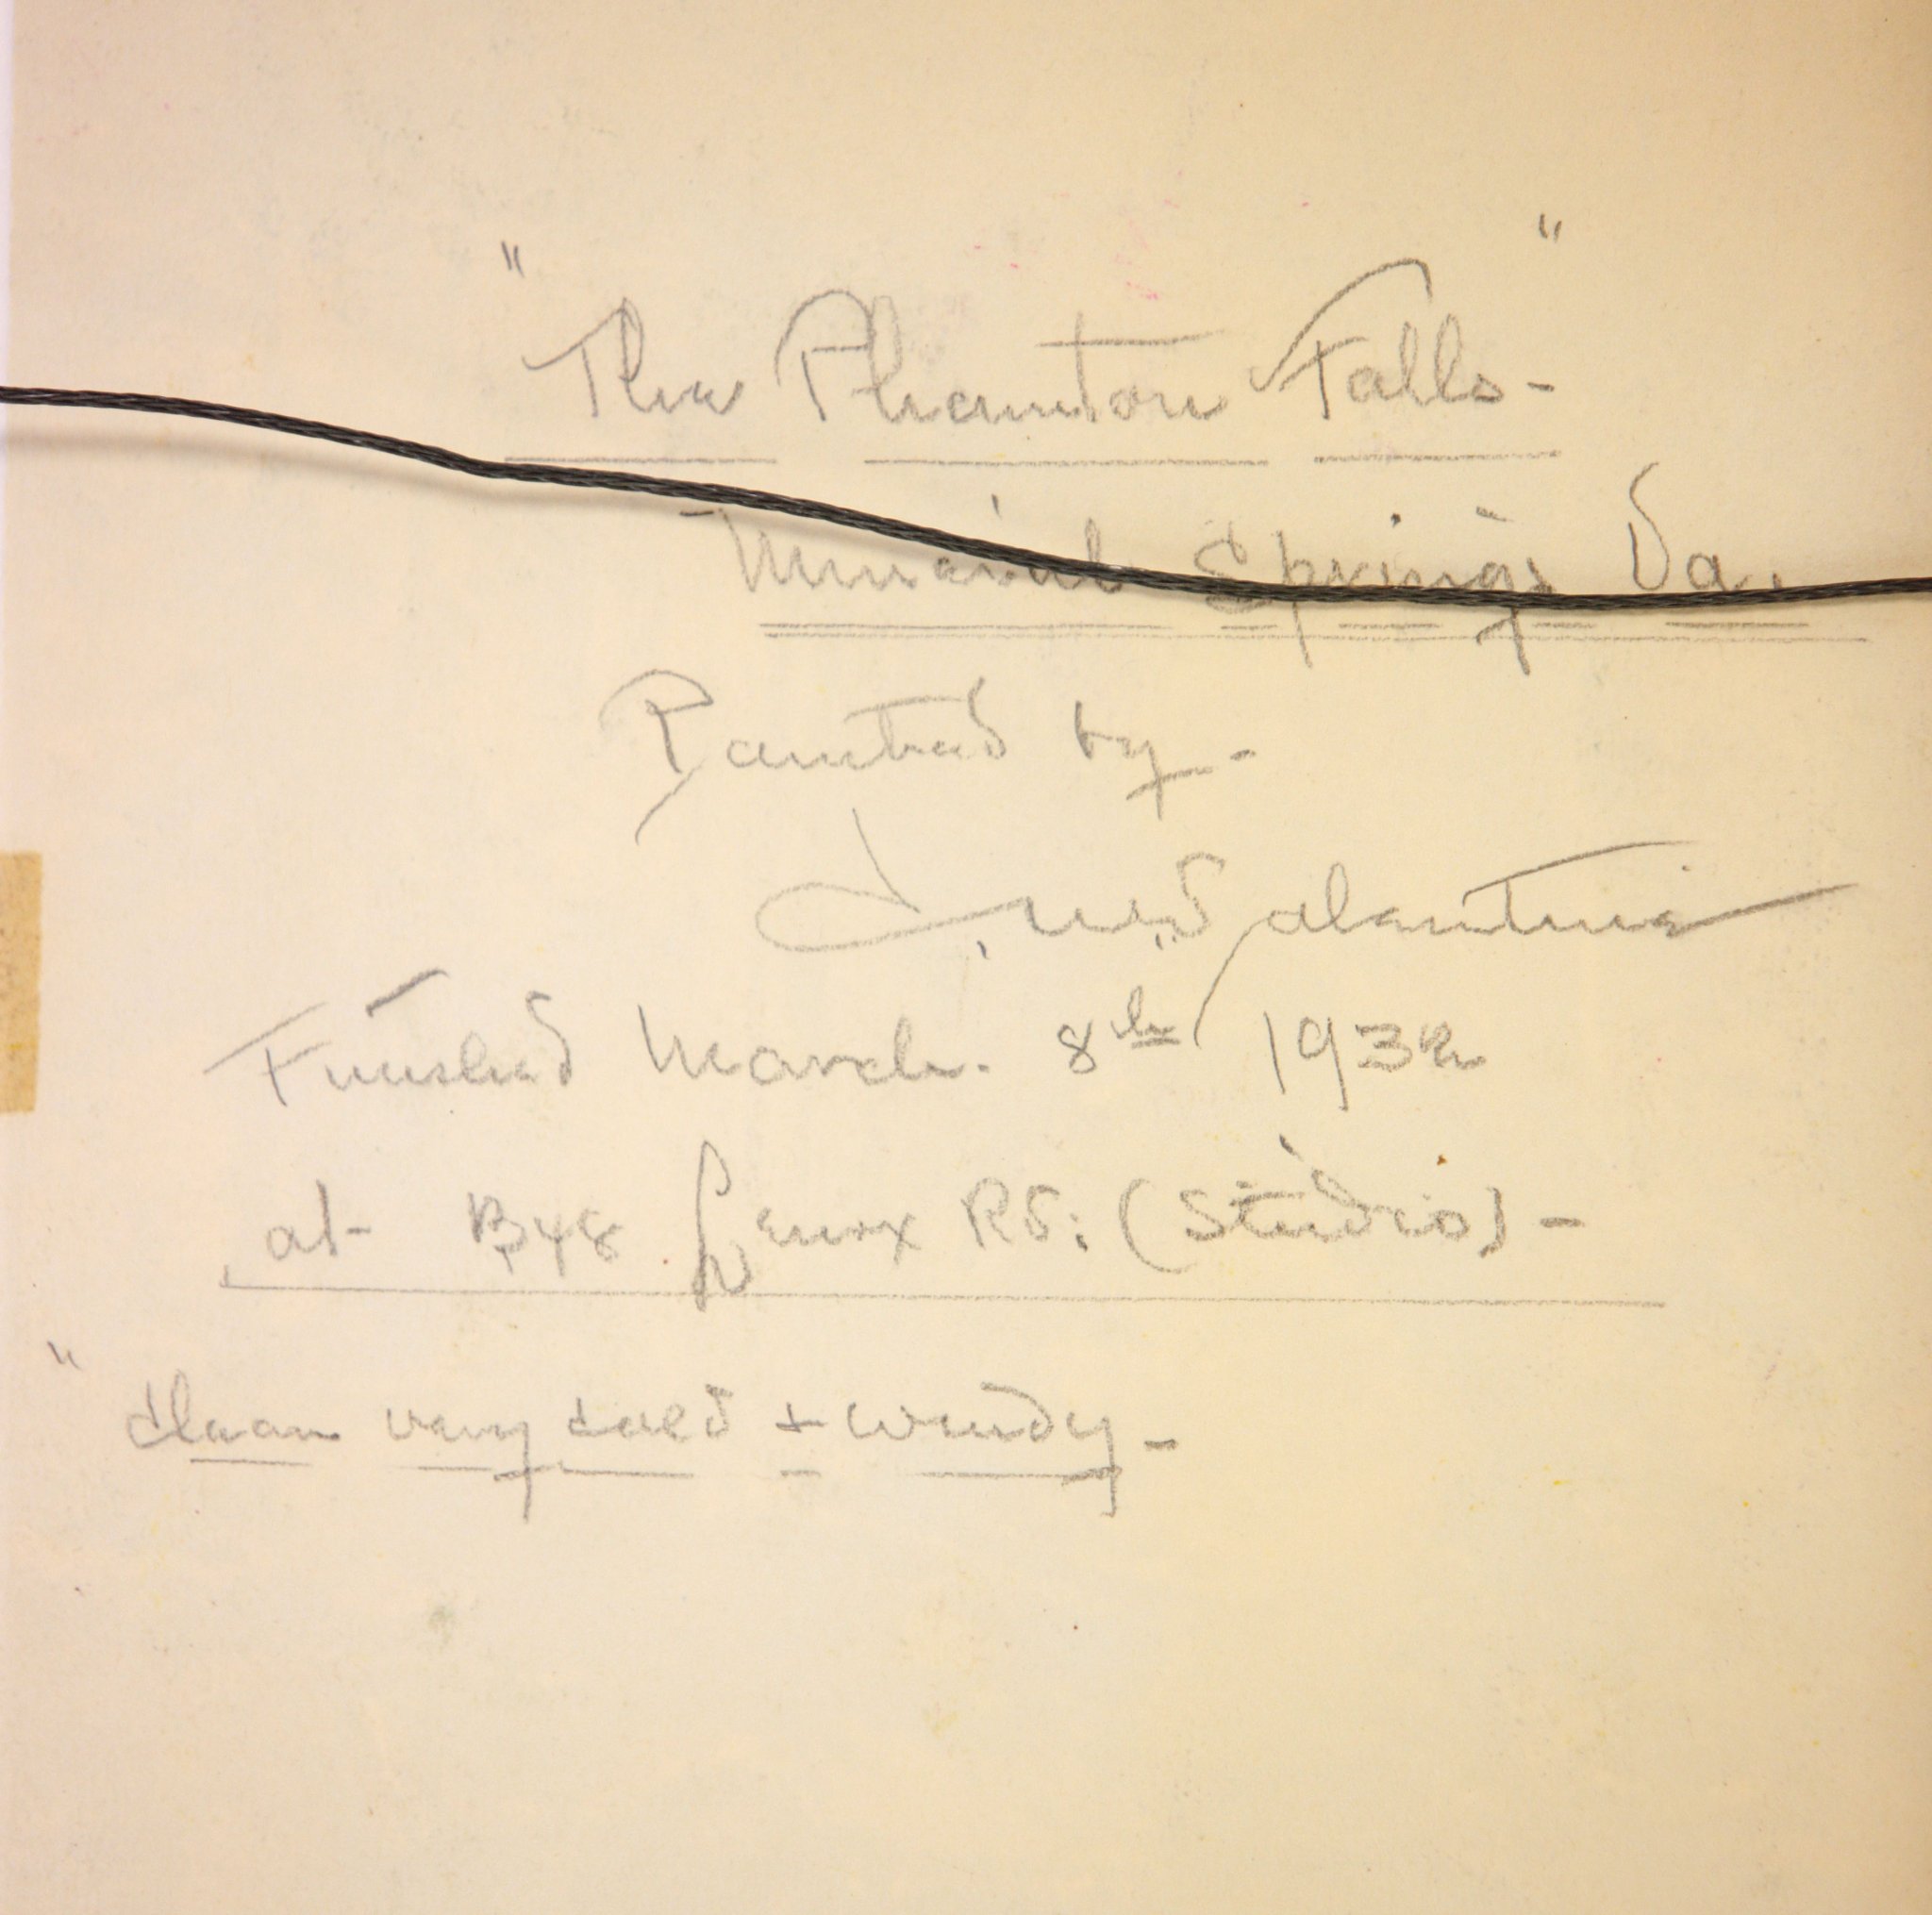 "The Phantom Falls-"
Mineral Springs Va.
Painted by-
Finished March. 8th 1932
at B48 Lenox Rd: (Studio)-
"Clear very cold + windy-